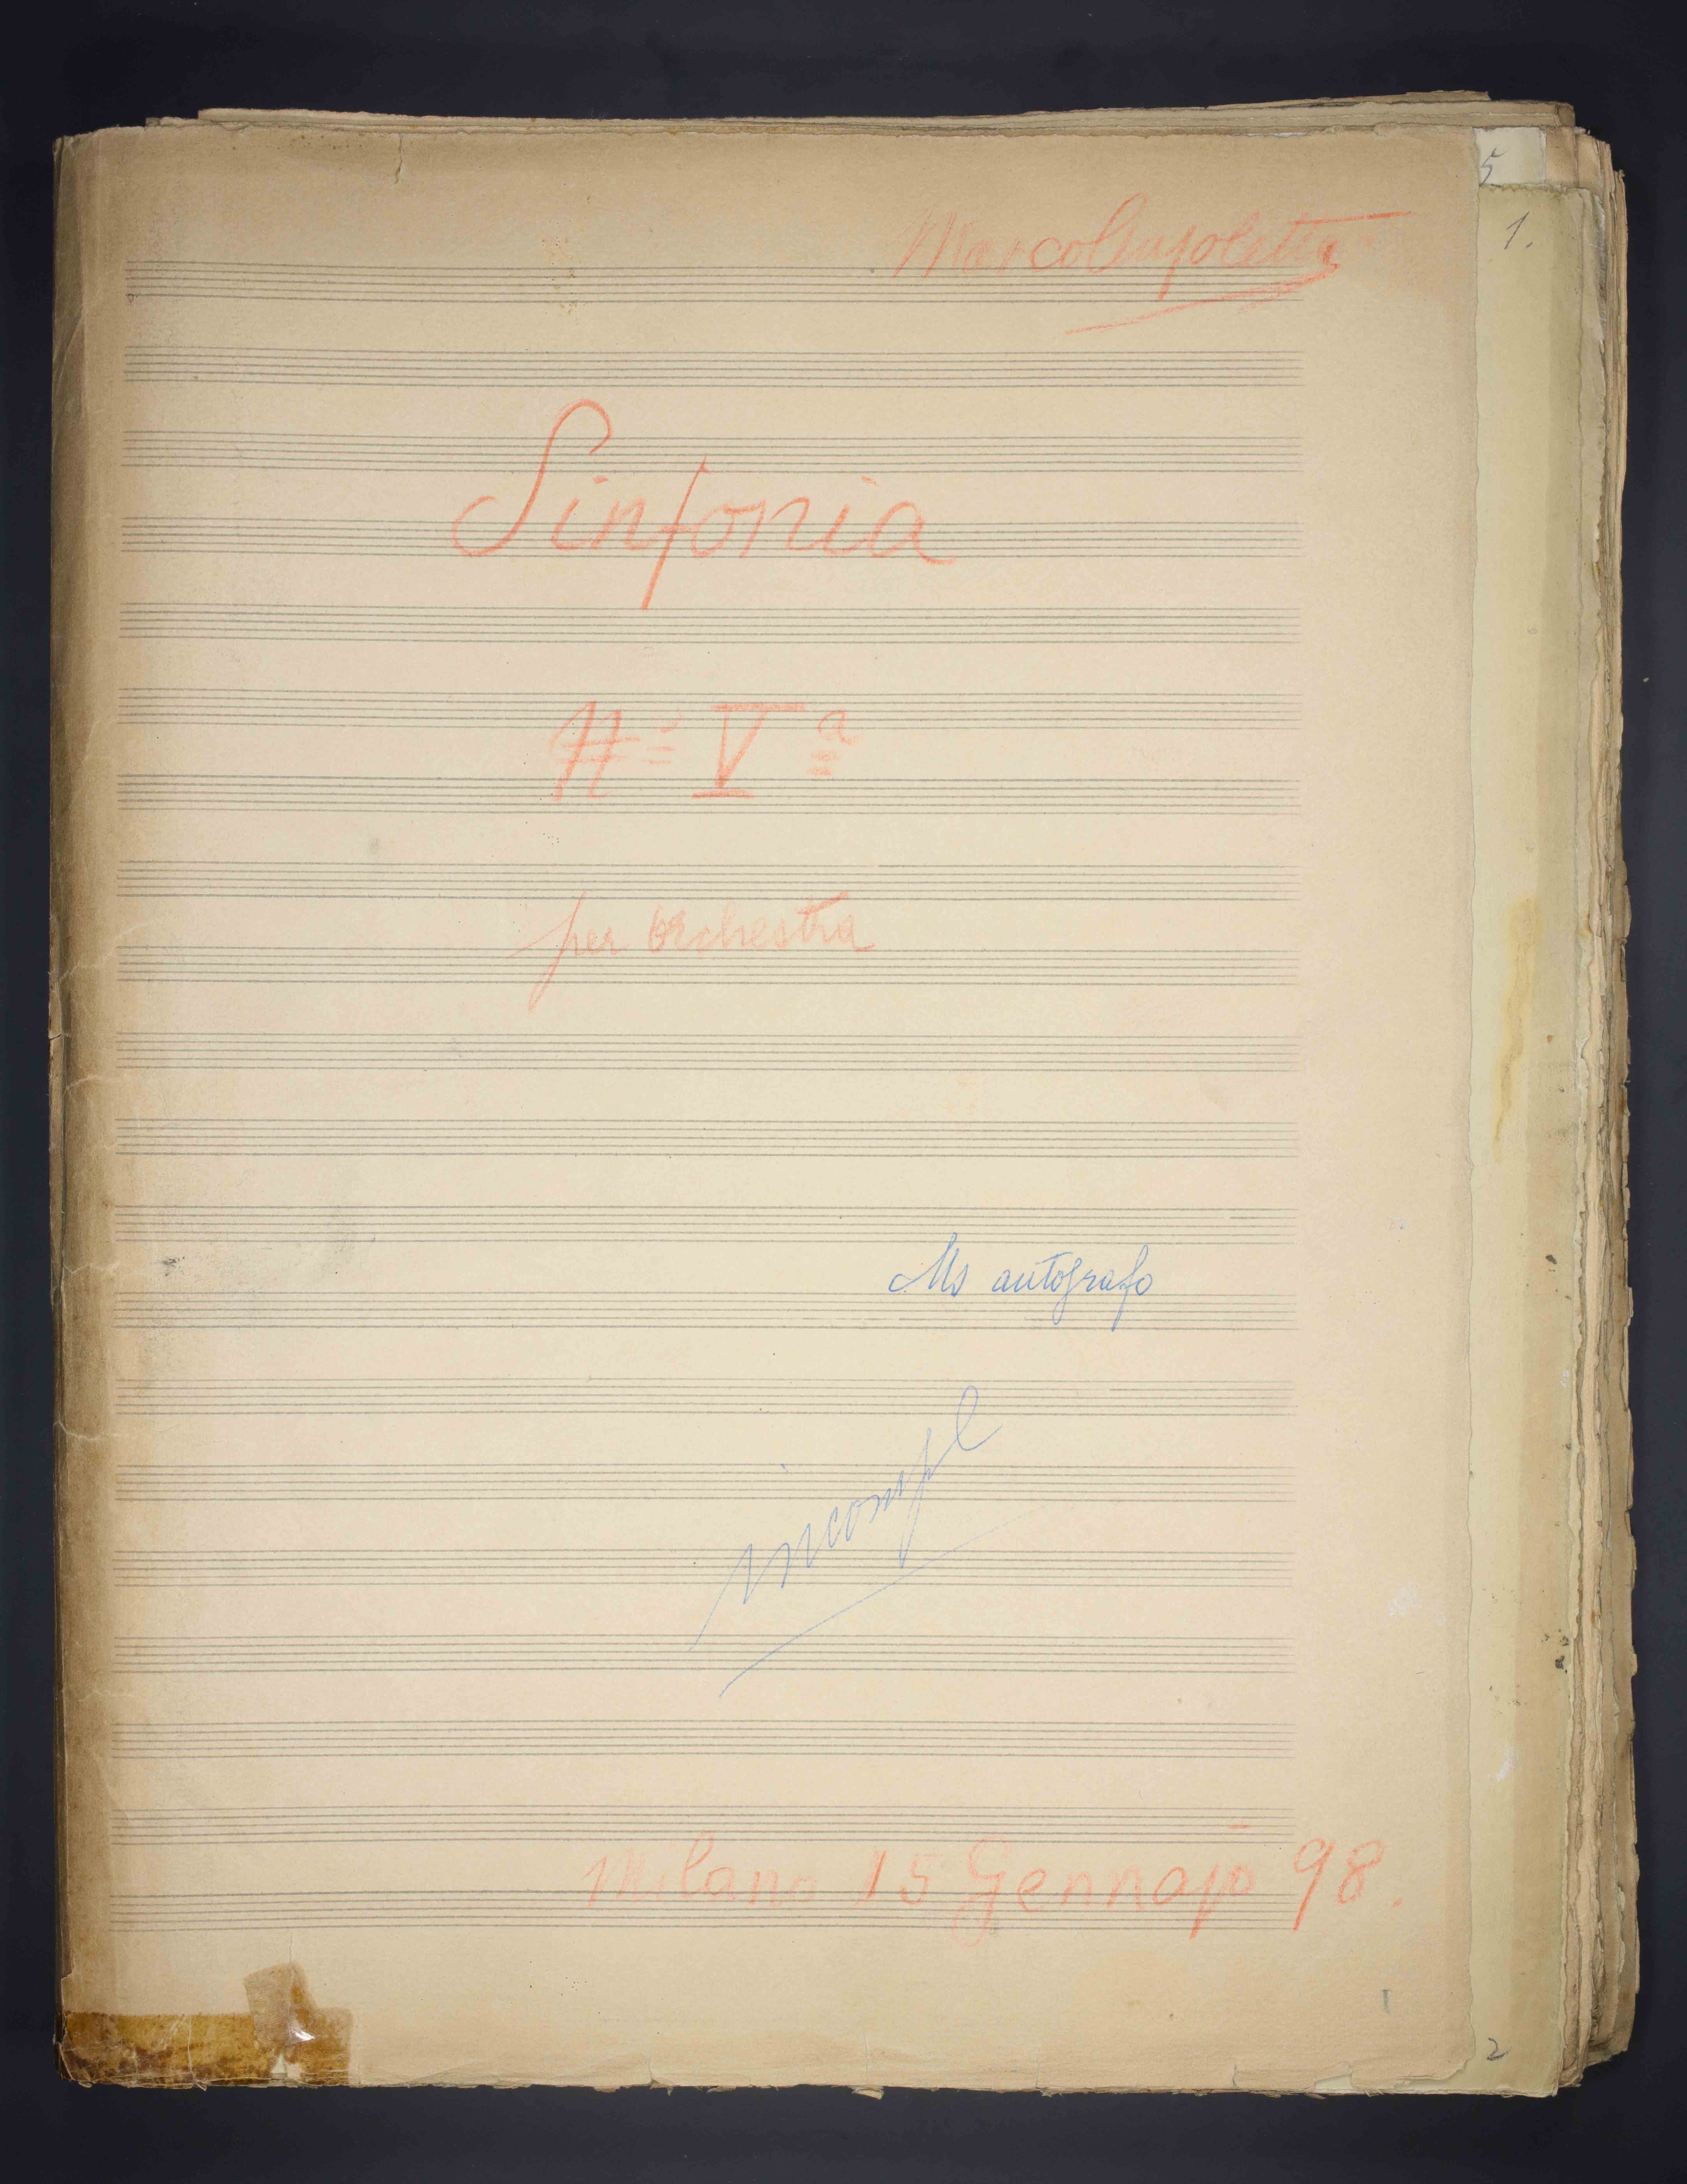 5
1.
Marco Anzoletti
Sinfonia
N= Vª
per Orchestra
Ms autografo
incompl
Milano 15 Gennajo 98.
1
2